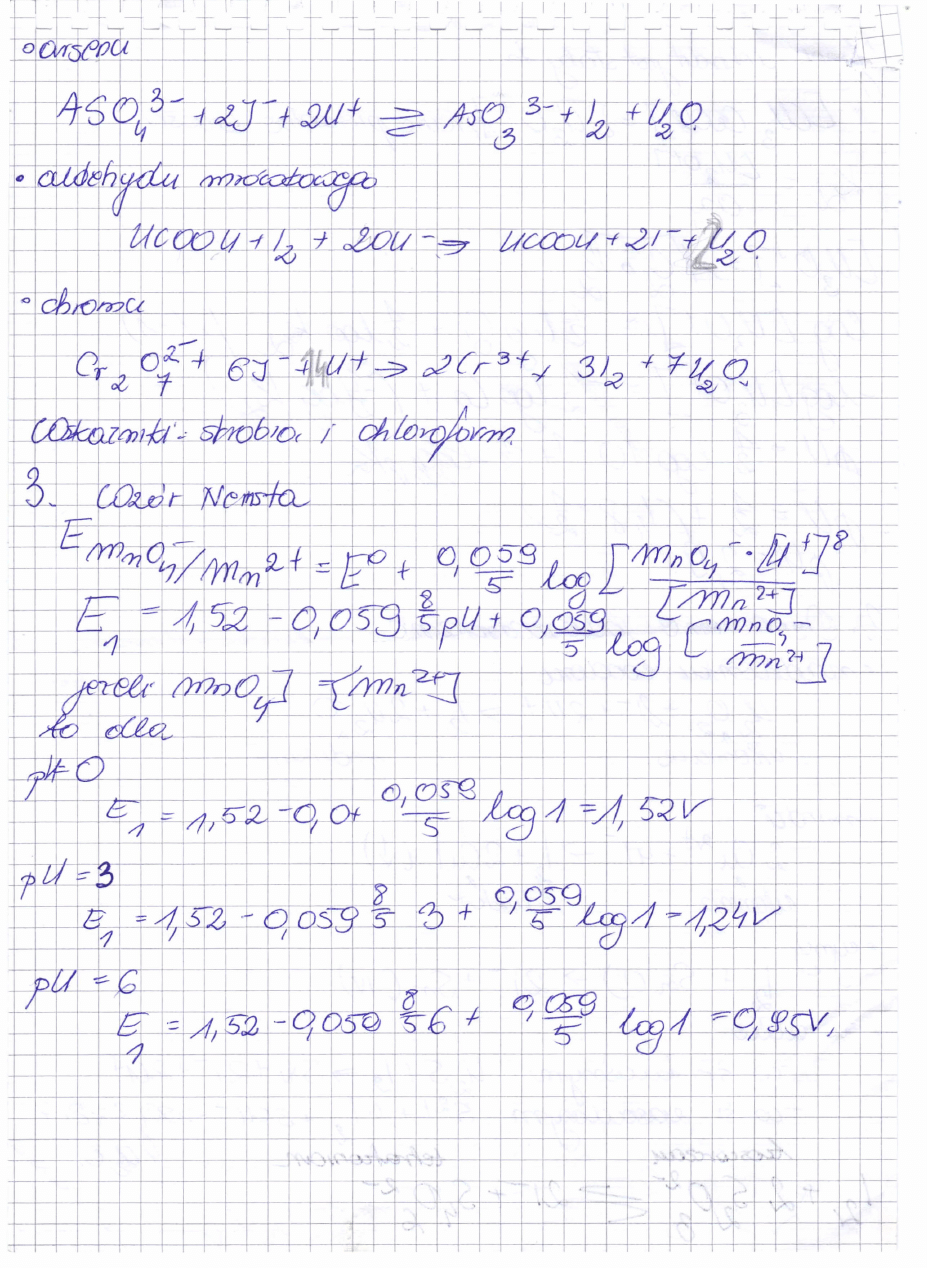 • arsenu
AsO₄³⁻ + 2J⁻ + 2H⁺ ⇌ AsO₃³⁻ + I₂ + H₂O.
• aldehydu mrówkowego
HCOOH + I₂ + 2OH⁻ ⇒ HCOOH + 2I⁻ + 2H₂O.
• chromu
Cr₂O₇²⁻ + 6J⁻ + 14H⁺ → 2Cr³⁺ + 3I₂ + 7H₂O.
Wskaźniki: skrobia i chloroform.
3. Wzór Nernsta
E MnO₄⁻/Mn²⁺ = E⁰ + 0,059/5 log [MnO₄⁻ · [H⁺]⁸ / [Mn²⁺]
E₁ = 1,52 - 0,059 8/5 pH + 0,059/5 log [MnO₄⁻ / Mn²⁺]
jeżeli MnO₄] = [Mn²⁺]
to dla
pH 0
E₁ = 1,52 - 0,0 + 0,059/5 log 1 = 1,52V
pH = 3
E₁ = 1,52 - 0,059 8/5 3 + 0,059/5 log 1 = 1,24V
pH = 6
E₁ = 1,52 - 0,059 8/5 6 + 0,059/5 log 1 = 0,95V.